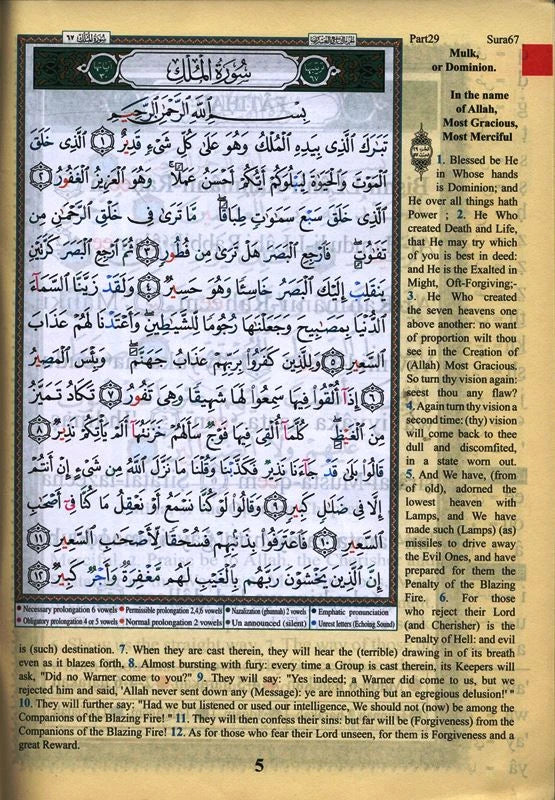 سورة الملك ٦٧
Part29 Sura67
سُورَةُ الْمُلْكِ
بِسْمِ اللَّهِ الرَّحْمَٰنِ الرَّحِيمِ
تَبَارَكَ الَّذِي بِيَدِهِ الْمُلْكُ وَهُوَ عَلَىٰ كُلِّ شَيْءٍ قَدِيرٌ ١ الَّذِي خَلَقَ
الْمَوْتَ وَالْحَيَوٰةَ لِيَبْلُوَكُمْ أَيُّكُمْ أَحْسَنُ عَمَلًا ۚ وَهُوَ الْعَزِيزُ الْغَفُورُ ٢
الَّذِي خَلَقَ سَبْعَ سَمَاوَاتٍ طِبَاقًا ۖ مَا تَرَىٰ فِي خَلْقِ الرَّحْمَٰنِ مِن
تَفَاوُتٍ ۖ فَارْجِعِ الْبَصَرَ هَلْ تَرَىٰ مِن فُطُورٍ ٣ ثُمَّ ارْجِعِ الْبَصَرَ كَرَّتَيْنِ
يَنقَلِبْ إِلَيْكَ الْبَصَرُ خَاسِئًا وَهُوَ حَسِيرٌ ٤ وَلَقَدْ زَيَّنَّا السَّمَاءَ
الدُّنْيَا بِمَصَابِيحَ وَجَعَلْنَاهَا رُجُومًا لِّلشَّيَاطِينِ ۖ وَأَعْتَدْنَا لَهُمْ عَذَابَ
السَّعِيرِ ٥ وَلِلَّذِينَ كَفَرُوا بِرَبِّهِمْ عَذَابُ جَهَنَّمَ ۖ وَبِئْسَ الْمَصِيرُ
٦ إِذَا أُلْقُوا فِيهَا سَمِعُوا لَهَا شَهِيقًا وَهِيَ تَفُورُ ٧ تَكَادُ تَمَيَّزُ
مِنَ الْغَيْظِ ۖ كُلَّمَا أُلْقِيَ فِيهَا فَوْجٌ سَأَلَهُمْ خَزَنَتُهَا أَلَمْ يَأْتِكُمْ نَذِيرٌ ٨
قَالُوا بَلَىٰ قَدْ جَاءَنَا نَذِيرٌ فَكَذَّبْنَا وَقُلْنَا مَا نَزَّلَ اللَّهُ مِن شَيْءٍ إِنْ أَنتُمْ
إِلَّا فِي ضَلَالٍ كَبِيرٍ ٩ وَقَالُوا لَوْ كُنَّا نَسْمَعُ أَوْ نَعْقِلُ مَا كُنَّا فِي أَصْحَابِ
السَّعِيرِ ١٠ فَاعْتَرَفُوا بِذَنبِهِمْ فَسُحْقًا لِّأَصْحَابِ السَّعِيرِ ١١
إِنَّ الَّذِينَ يَخْشَوْنَ رَبَّهُم بِالْغَيْبِ لَهُم مَّغْفِرَةٌ وَأَجْرٌ كَبِيرٌ ١٢
● Necessary prolongation 6 vowels ● Permissible prolongation 2,4,6 vowels ● Nazalization (ghunnah) 2 vowels ● Emphatic pronunciation
● Obligatory prolongation 4 or 5 vowels ● Normal prolongation 2 vowels ● Un announced (silent) ● Unrest letters (Echoing Sound)
Mulk,
or Dominion.
In the name
of Allah,
Most Gracious,
Most Merciful
1. Blessed be He
in Whose hands
is Dominion; and
He over all things hath
Power ; 2. He Who
created Death and Life,
that He may try which
of you is best in deed:
and He is the Exalted in
Might, Oft-Forgiving;-
3. He Who created
the seven heavens one
above another: no want
of proportion wilt thou
see in the Creation of
(Allah) Most Gracious.
So turn thy vision again:
seest thou any flaw?
4. Again turn thy vision a
second time: (thy) vision
will come back to thee
dull and discomfited,
in a state worn out.
5. And We have, (from
of old), adorned the
lowest heaven with
Lamps, and We have
made such (Lamps) (as)
missiles to drive away
the Evil Ones, and have
prepared for them the
Penalty of the Blazing
Fire. 6. For those
who reject their Lord
(and Cherisher) is the
Penalty of Hell: and evil
is (such) destination. 7. When they are cast therein, they will hear the (terrible) drawing in of its breath
even as it blazes forth, 8. Almost bursting with fury: every time a Group is cast therein, its Keepers will
ask, "Did no Warner come to you?" 9. They will say: "Yes indeed; a Warner did come to us, but we
rejected him and said, 'Allah never sent down any (Message): ye are innothing but an egregious delusion!' "
10. They will further say: "Had we but listened or used our intelligence, We should not (now) be among the
Companions of the Blazing Fire! " 11. They will then confess their sins: but far will be (Forgiveness) from the
Companions of the Blazing Fire! 12. As for those who fear their Lord unseen, for them is Forgiveness and a
great Reward.
5